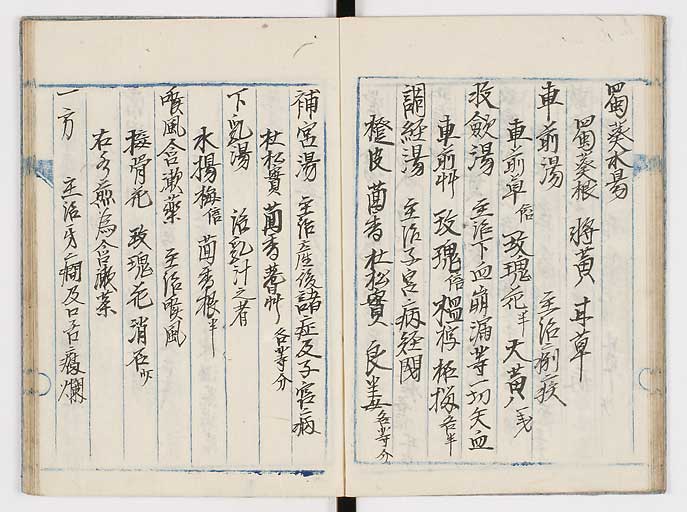 蜀葵水湯
蜀葵根 将黄 耳草
車前湯 主治痢疾
車前草倍 玫瑰花半 大黄八戋
收斂湯 主治下血崩漏等一切失血
車前艸 玫瑰倍 榲桲 柘榴各半
調経湯 主治子宮病経閉
橙皮 茴香 杜松實 良姜各等分
補宮湯 主治産後諸症及子宮病
杜松實 茴香 蓍艸 各等分
下乳湯 治乳汁乏者
水楊梅倍 茴香根半
喉風含漱薬 主治喉風
接骨花 玫瑰花 消石少
右水煎為含漱薬
一方 主治牙痛及口舌腐爛